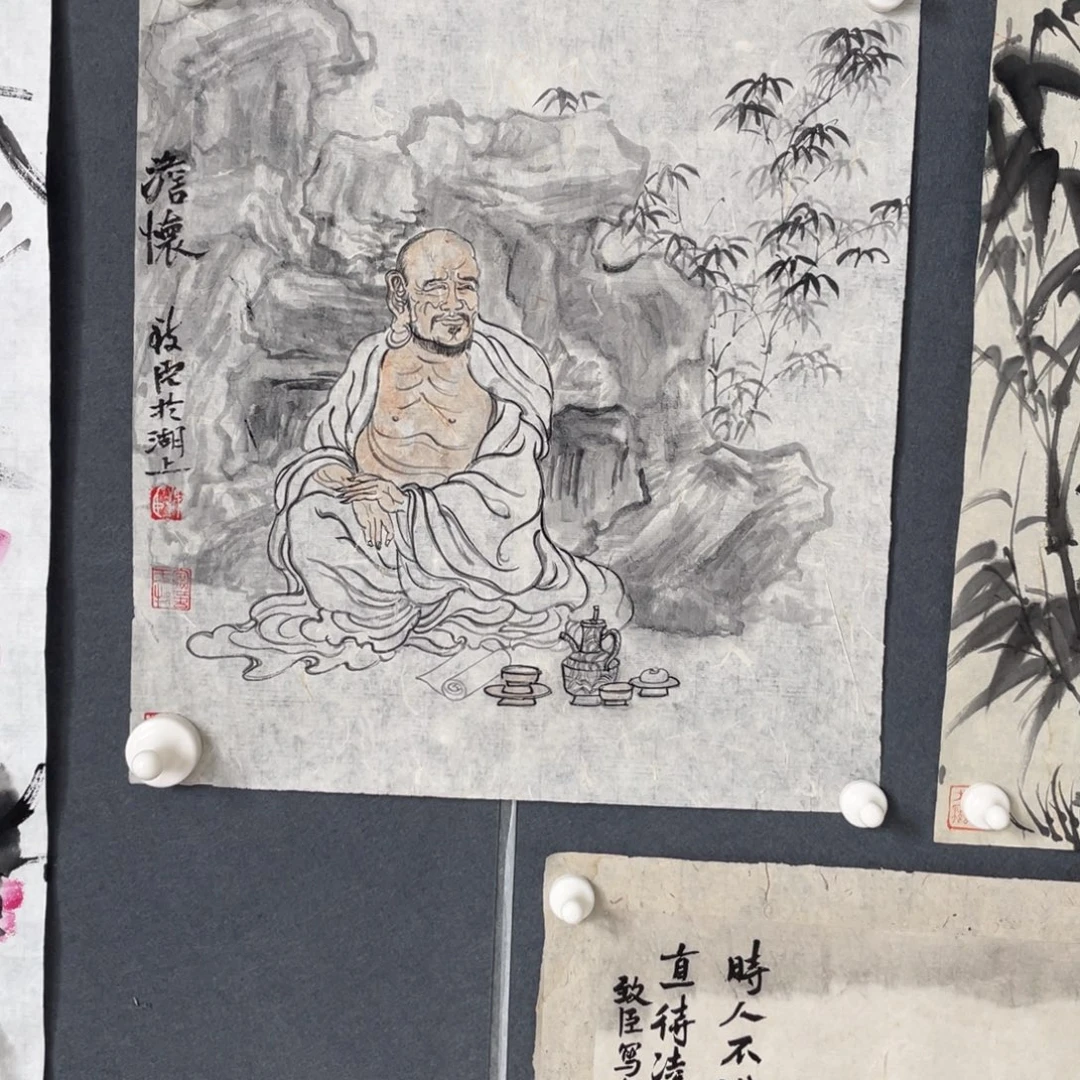 澹懷
致臣於湖上
時人不
直待凌
致臣寫